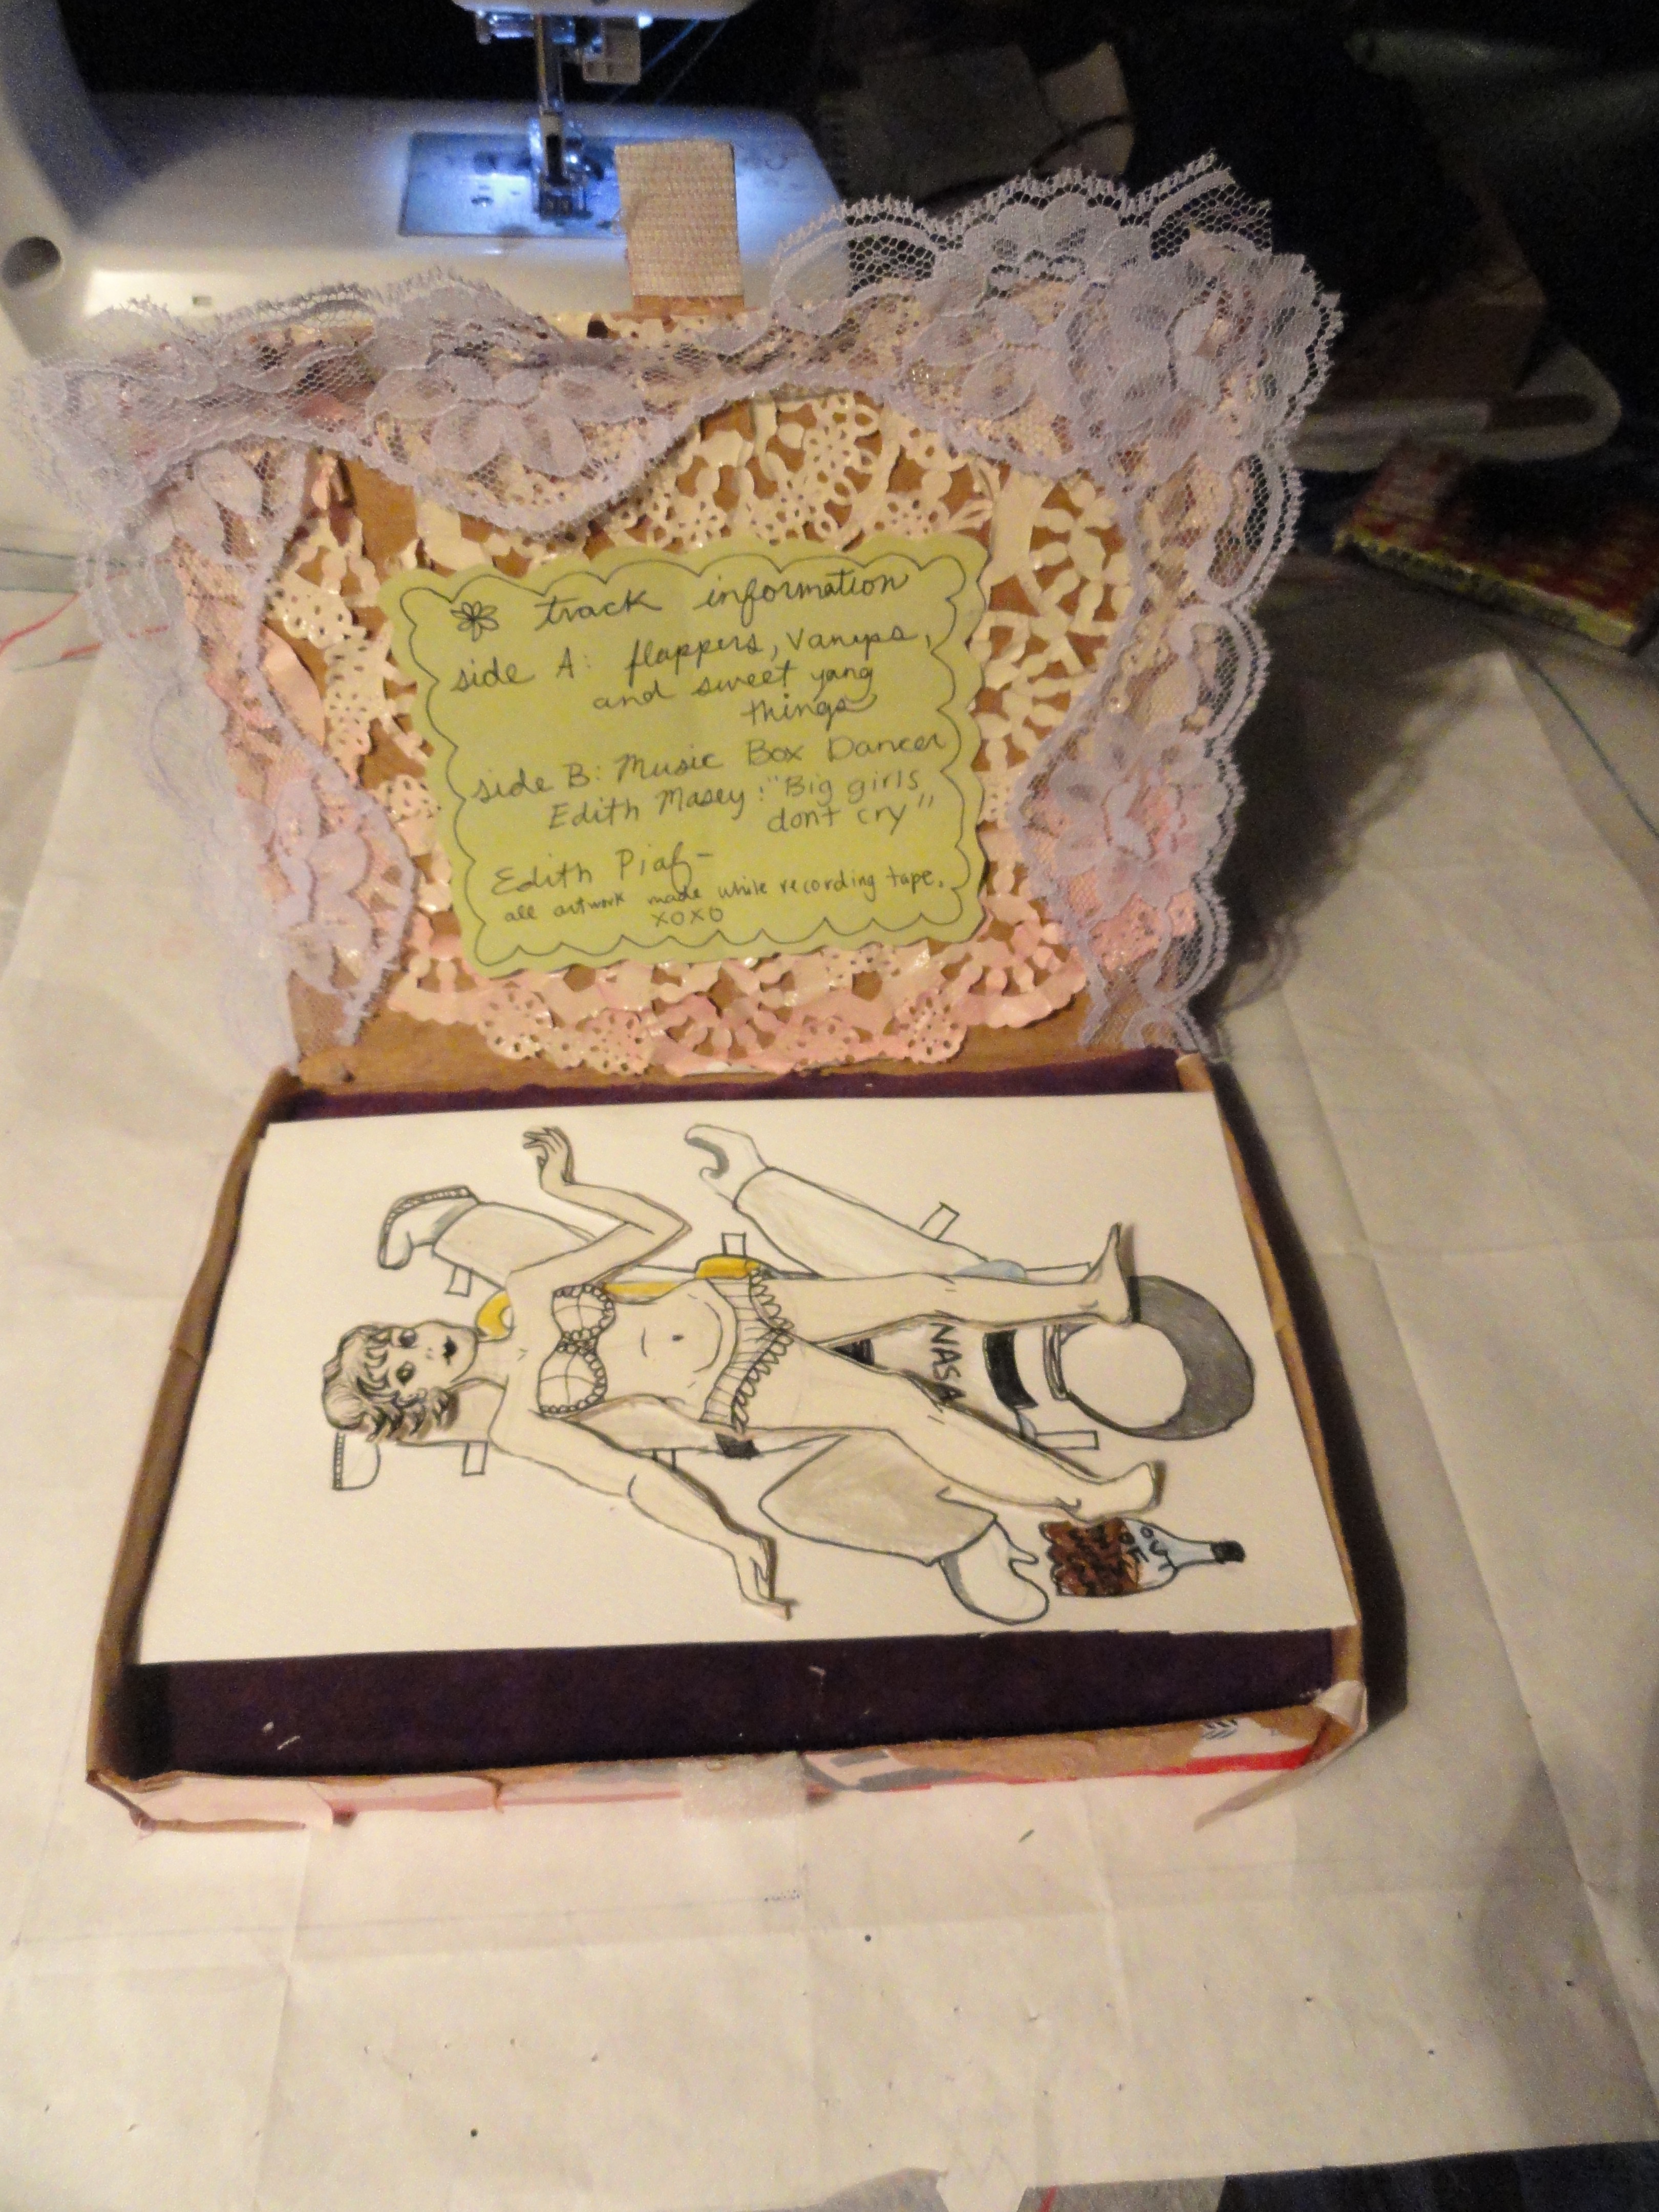 track information
side A: flappers, vamps,
and sweet yang
things
side B: Music Box Dancer
Edith Masey: "Big girls
dont cry"
Edith Piaf-
all artwork made while recording tape.
xoxo
NASA
OUT
OF